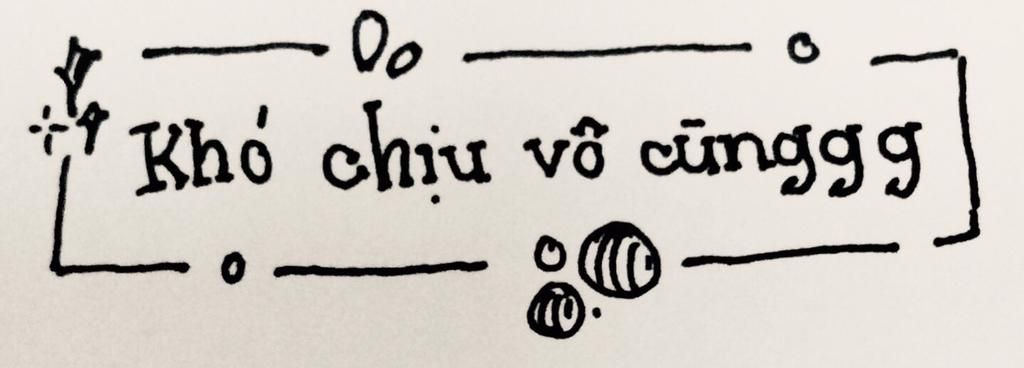 Khó chịu vô cũnggg